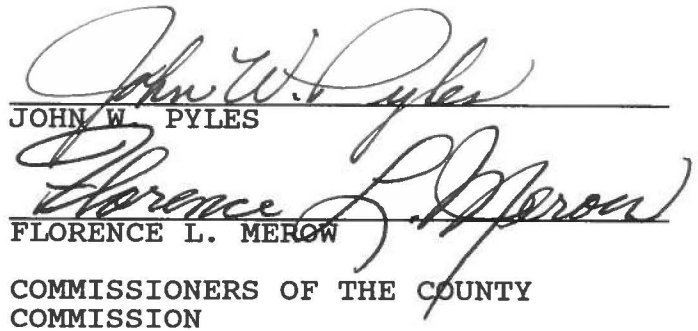 John W. Pyles
JOHN W. PYLES
Florence L. Merow
FLORENCE L. MEROW
COMMISSIONERS OF THE COUNTY
COMMISSION